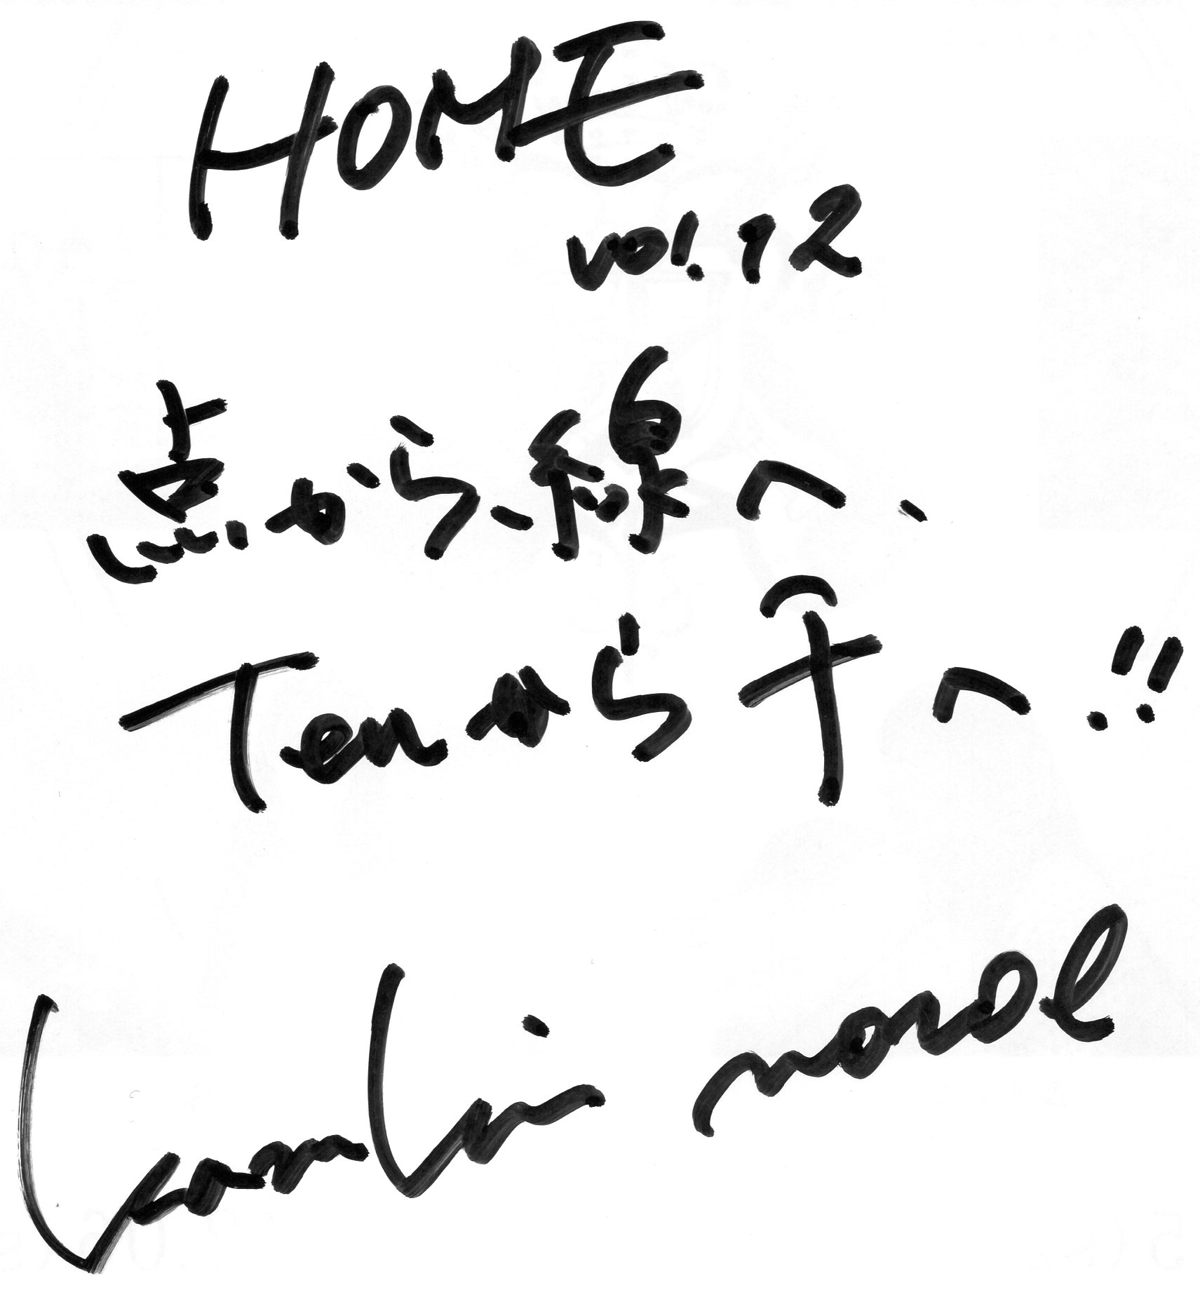 HOME
vol.12
点から、線へ、
Tenから千へ!!